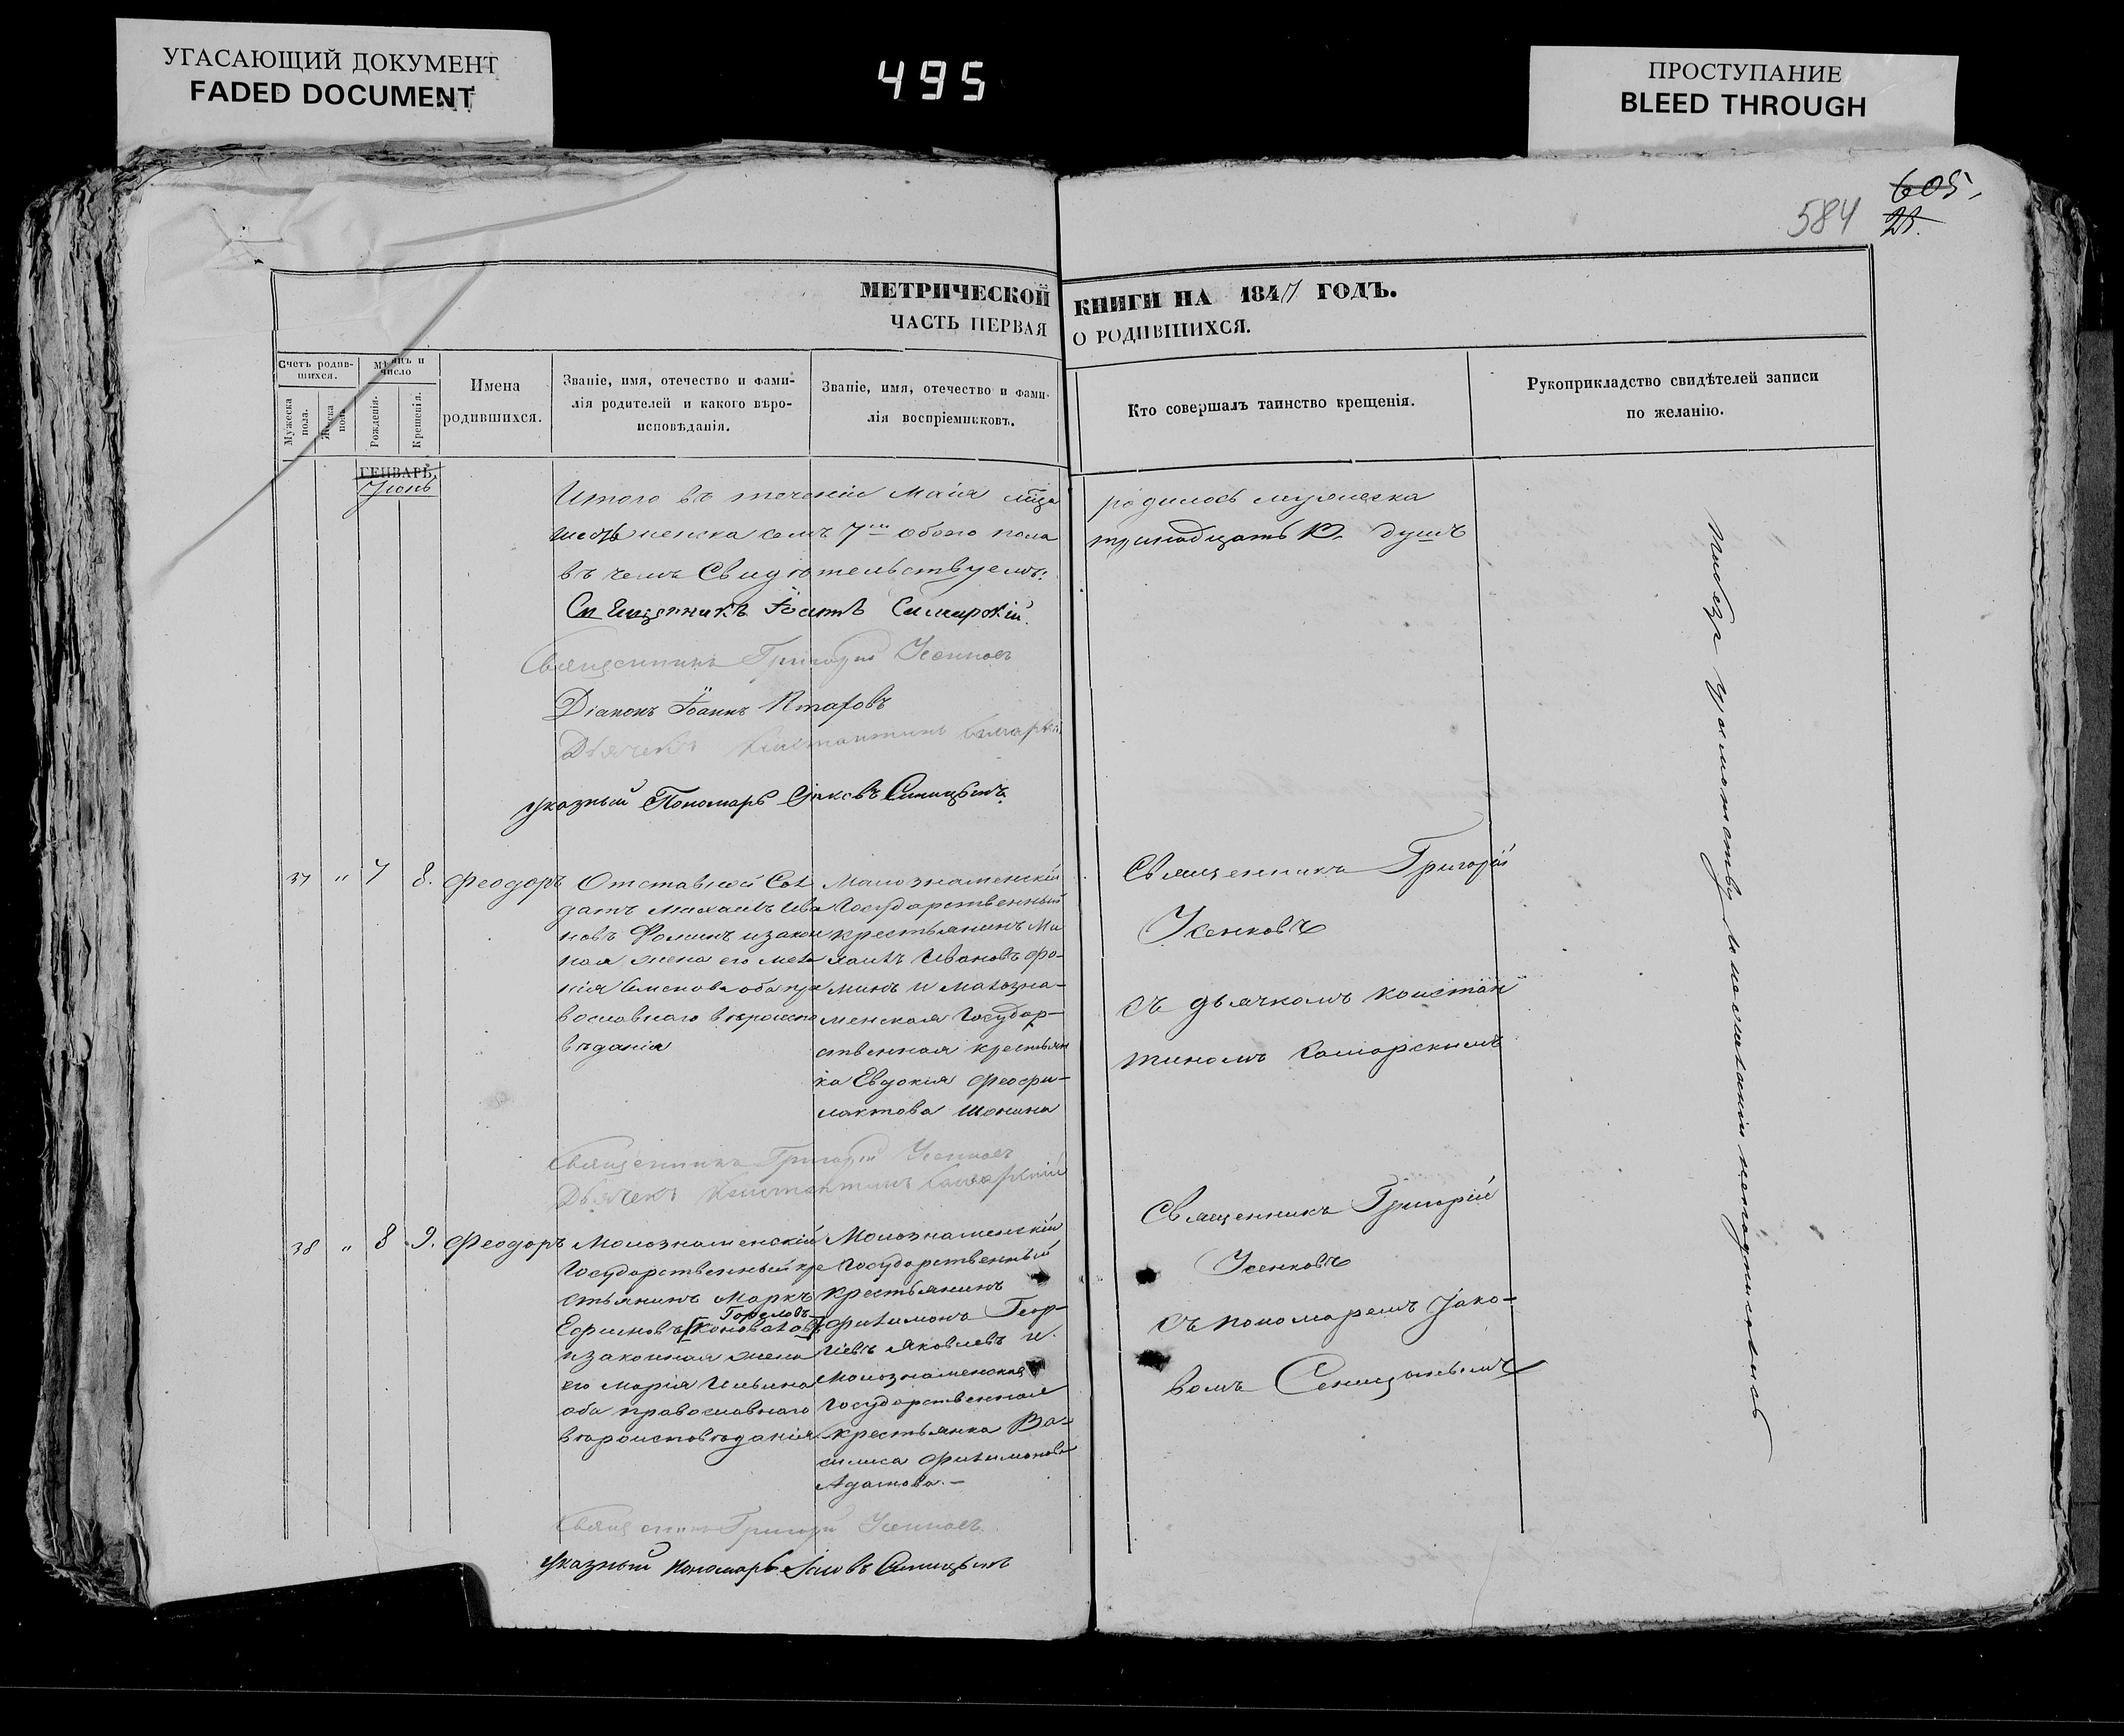 УГАСАЮЩИЙ ДОКУМЕНТ
FADED DOCUMENT
495
ПРОСТУПАНИЕ
BLEED THROUGH
605.
584
МЕТРИЧЕСКОЙ КНИГИ НА 1847 ГОДЪ.
ЧАСТЬ ПЕРВАЯ О РОДИВШИХСЯ.
Счетъ родив-
шихся.
Мужеска
пола.
Женска
пола.
Мѣсяцъ и
число
Рожденія.
Крещенія.
Имена
родившихся.
Званіе, имя, отечество и фами-
лія родителей и какого вѣро-
исповѣданія.
Званіе, имя, отечество и фами-
лія воспріемниковъ.
Кто совершалъ таинство крещенія.
Рукоприкладство свидѣтелей записи
по желанію.
ГЕНВАРЬ.
Іюнь
Итого въ теченіи маія мца родилось мужеска
шесть женска семь 7 обоего пола тринадцать душъ
въ чемъ Свидѣтельствуемъ:
Священникъ Іоаннъ
Священникъ Григорій Усенковъ
Діаконъ Іоаннъ
Дьячекъ Константинъ
указный Пономарь Іаковъ Синицынъ
37 " 7 8. Феодоръ
Отставной Сол
датъ Михаилъ Ива
новъ Фоминъ и закон
ная жена его Мела
нія Симонова оба пра
вославнаго вѣроиспо
вѣданія
Малознаменскій
Государственный
крестьянинъ Ми
хаилъ Ивановъ Фо-
минъ и Малозна-
менская Государ-
ственная крестьян
ка Евдокія Феофи-
лактова Шонина
Священникъ Григорій
Усенковъ
съ дьячкомъ Констан
тиномъ
Священникъ Григорій Усенковъ
Дьячекъ Константинъ
38 " 8 9. Феодоръ
Малознаменскій
Государственный кре
стьянинъ Маркъ
Гореловъ
Ефимовъ [Коноваловъ]
и законная жена
его Марія Ильина
оба православнаго
вѣроисповѣданія
Малознаменскій
Государственный
Крестьянинъ
Филимонъ Геор-
гіевъ Яковлевъ и
Малознаменская
Государственная
крестьянка Ва-
силиса Филимонова
Адамова.-
Священникъ Григорій
Усенковъ
съ пономаремъ Іако-
вомъ Синицынымъ
Священникъ Григорій Усенковъ
Указный пономарь Іаковъ Синицынъ